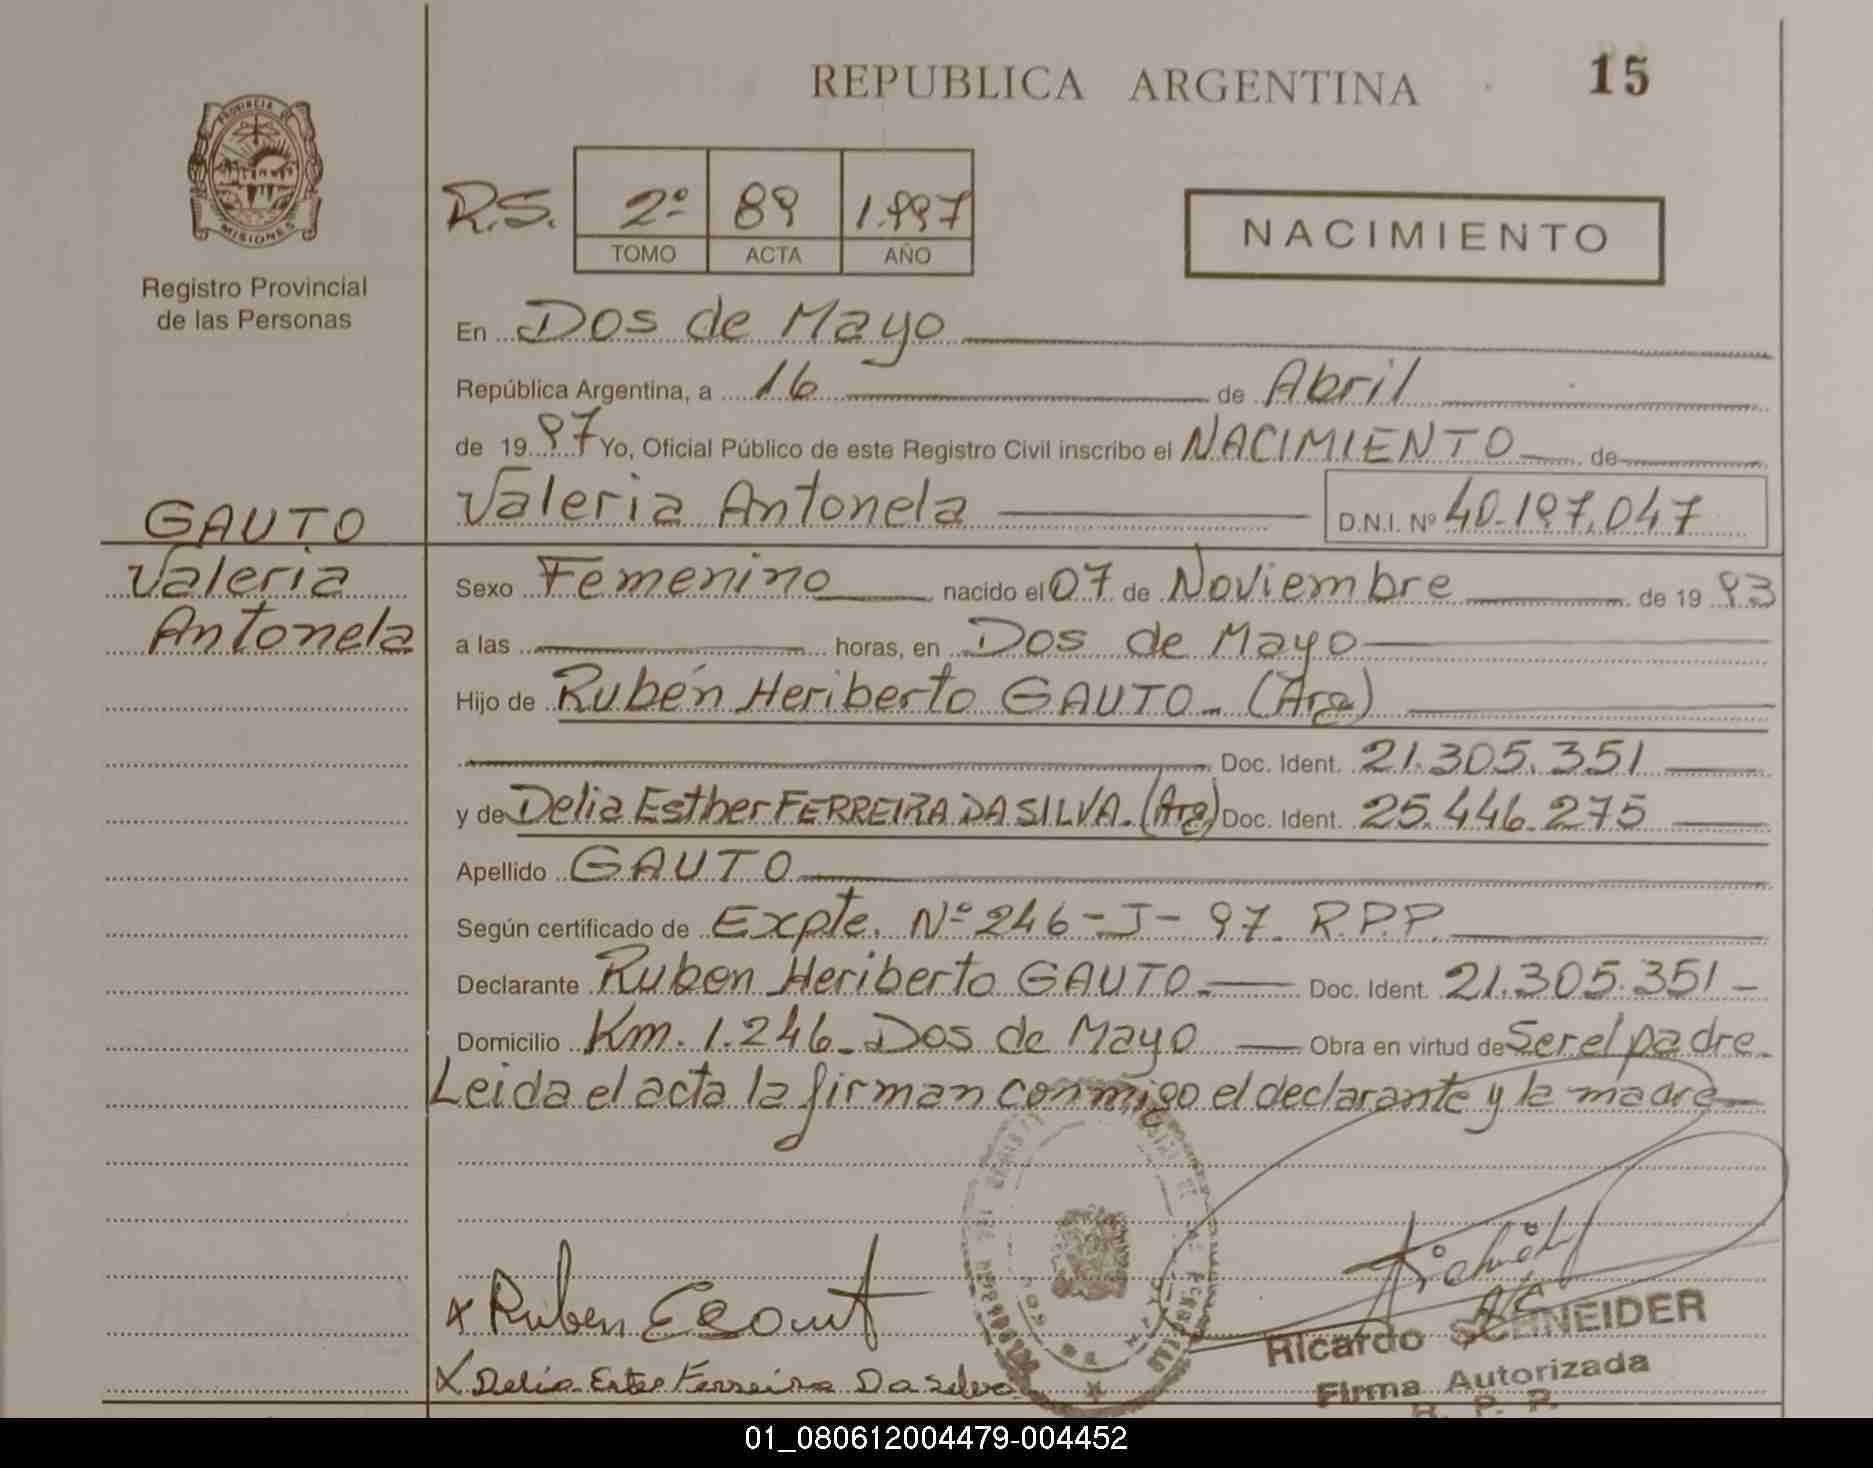 REPUBLICA ARGENTINA 15
PROVINCIA DE
MISIONES
Registro Provincial
de las Personas
R.S. 2º 89 1.997
TOMO ACTA AÑO
NACIMIENTO
En Dos de Mayo
República Argentina, a 16 de Abril
de 19 97 Yo, Oficial Público de este Registro Civil inscribo el NACIMIENTO de
Valeria Antonela D.N.I. Nº 40.197.047
GAUTO
Valeria
Antonela
Sexo Femenino nacido el 07 de Noviembre de 19 93
a las horas, en Dos de Mayo
Hijo de Rubén Heriberto GAUTO - (Arg)
Doc. Ident. 21.305.351
y de Delia Esther FERREIRA DA SILVA. (Arg) Doc. Ident. 25.446.275
Apellido GAUTO
Según certificado de Expte. Nº 246-J-97. R.P.P.
Declarante Ruben Heriberto GAUTO - Doc. Ident. 21.305.351 -
Domicilio Km. 1.246 - Dos de Mayo Obra en virtud de Ser el padre.
Leida el acta la firman conmigo el declarante y la madre
x Ruben
x Delia Ester Ferreira Da Silva
Ricardo SCHNEIDER
Firma Autorizada
R. P. P.
01_080612004479-004452